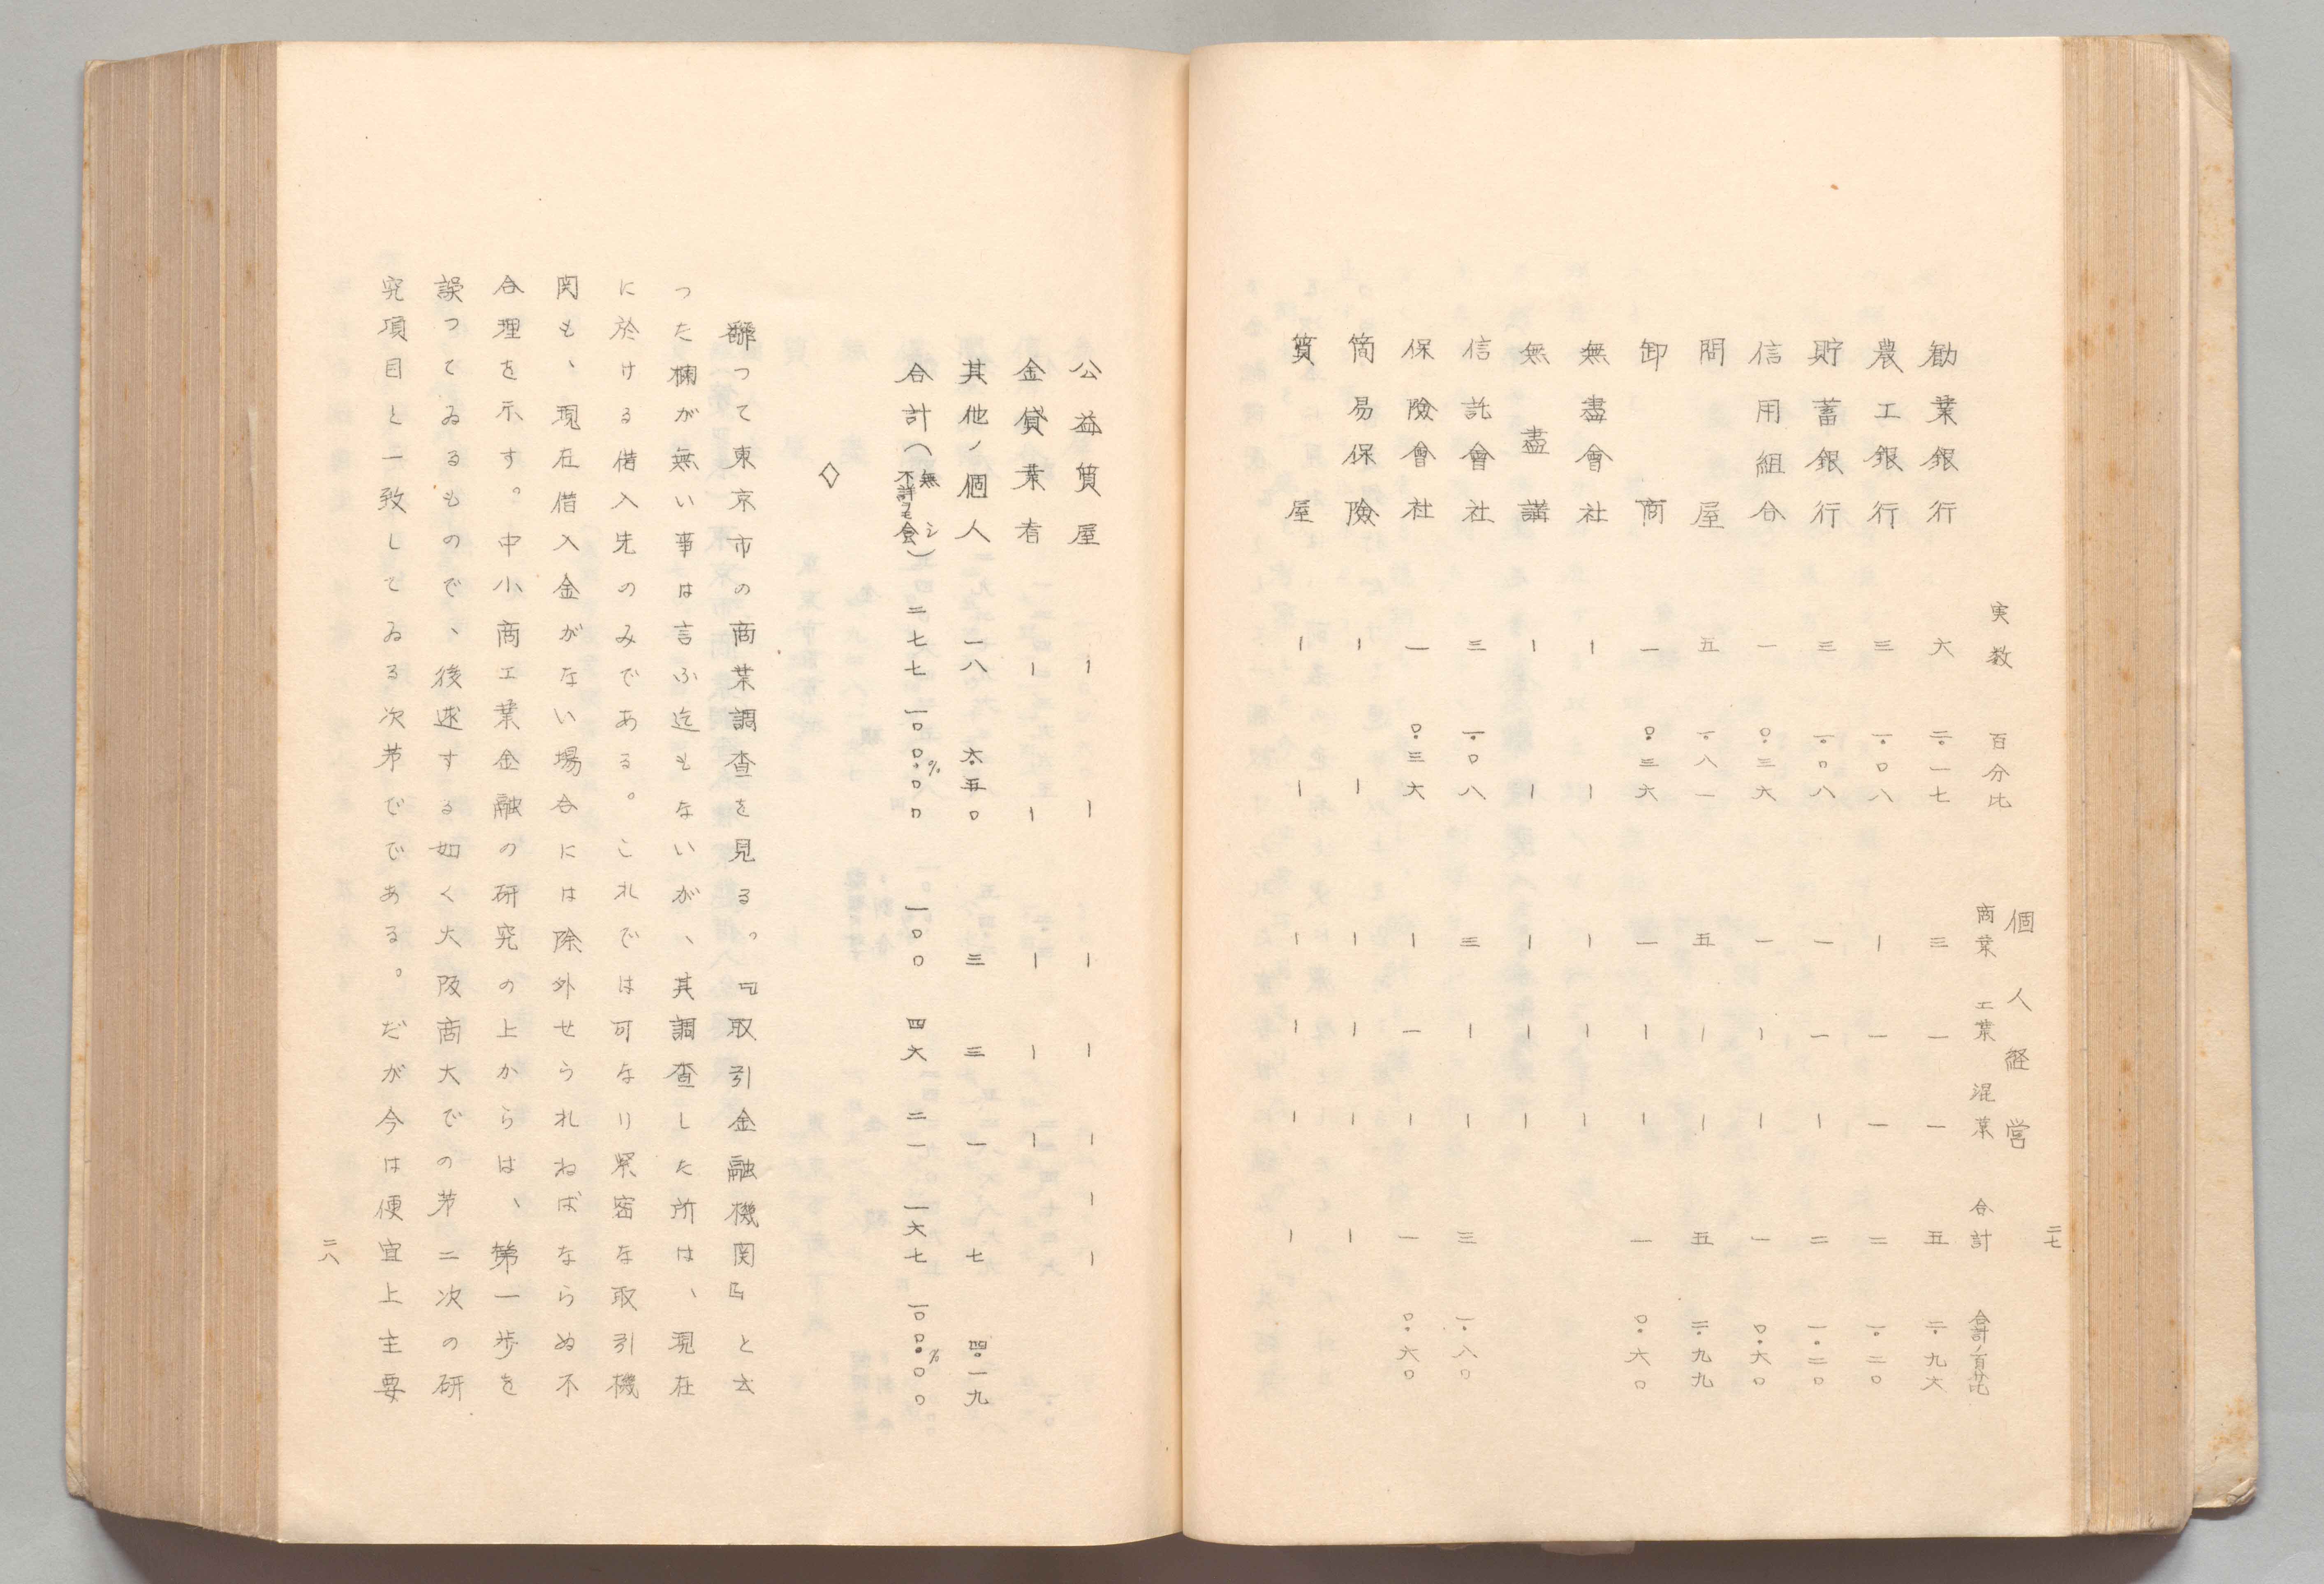 二七
個人経営
実数 百分比 商業 工業 混業 合計 合計ノ百分比
勧業銀行 六 二・一七 三 一 一 五 二・九六
農工銀行 三 一・〇八 ー 一 一 二 一・二〇
貯蓄銀行 三 一・〇八 一 一 ー 二 一・二〇
信用組合 一 〇・三六 一 ー ー 一 〇・六〇
問屋 五 一・八一 五 ー ー 五 二・九九
卸商 一 〇・三六 一 ー ー 一 〇・六〇
無盡會社 ー ー ー ー ー
無盡講 ー ー ー ー ー
信託會社 三 一・〇八 三 ー ー 三 一・八〇
保險會社 一 〇・三六 ー 一 ー 一 〇・六〇
簡易保險 ー ー ー ー ー ー
質屋 ー ー ー ー ー ー
公益質屋 ー ー ー ー ー ー ー
金貸業者 ー ー ー ー ー
其他ノ個人 一八 六・五〇 三 三 一 七 四・一九
合計(無シ不詳ヲモ含) 二七七 一〇〇・〇〇% 一〇〇 四六 二一 一六七 一〇〇・〇〇%
◇
飜つて東京市の商業調査を見る。『取引金融機関』と云
つた欄が無い事は言ふ迄もないが、其調査した所は、現在
に於ける借入先のみである。これでは可なり緊密な取引機
関も、現在借入金がない場合には除外せられねばならぬ不
合理を示す。中小商工業金融の研究の上からは、第一歩を
誤つてゐるもので、後述する如く大阪商大での㐧二次の研
究項目と一致してゐる次㐧でである。だが今は便宜上主要
二八